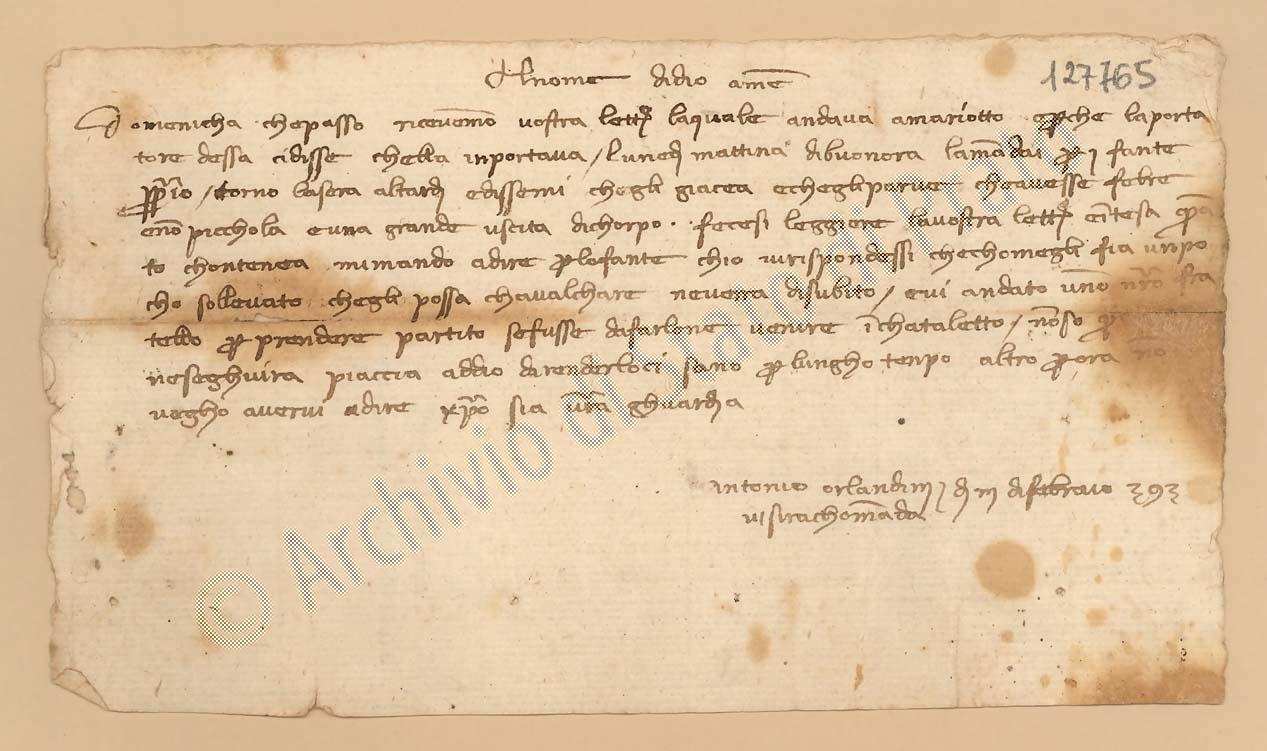 Al nome didio ame
127765
Domenicha chepasso ricevemo vostra lettr laquale andava amariotto perche laporta
tore dessa cidisse chella inportava / lunedi mattina dibuonora lamadai per j fante
proprio / torno lasera altardi edissemi chegli giacea echegliparve cheavesse febre
eno picchola euna grande uscita dichorpo . fecesi leggiere lavostra lettr eitesa
to chontenea mimando adire perlofante chio virispondessi chechomegli fia unpo
cho sollevato chegli possa chavalchare neverra disubito / evi andato uno nro fra
tello per prendere partito sefusse dafarlone venire i chataletto / noso
neseghuira piaccia addio direnderloci sano per lungho tenpo altro perora no
vegho avervi adire xpo sia vra ghuardia
antonio orlandini di iij difebraio 393
visirachomada
© Archivio di Stato di Prato